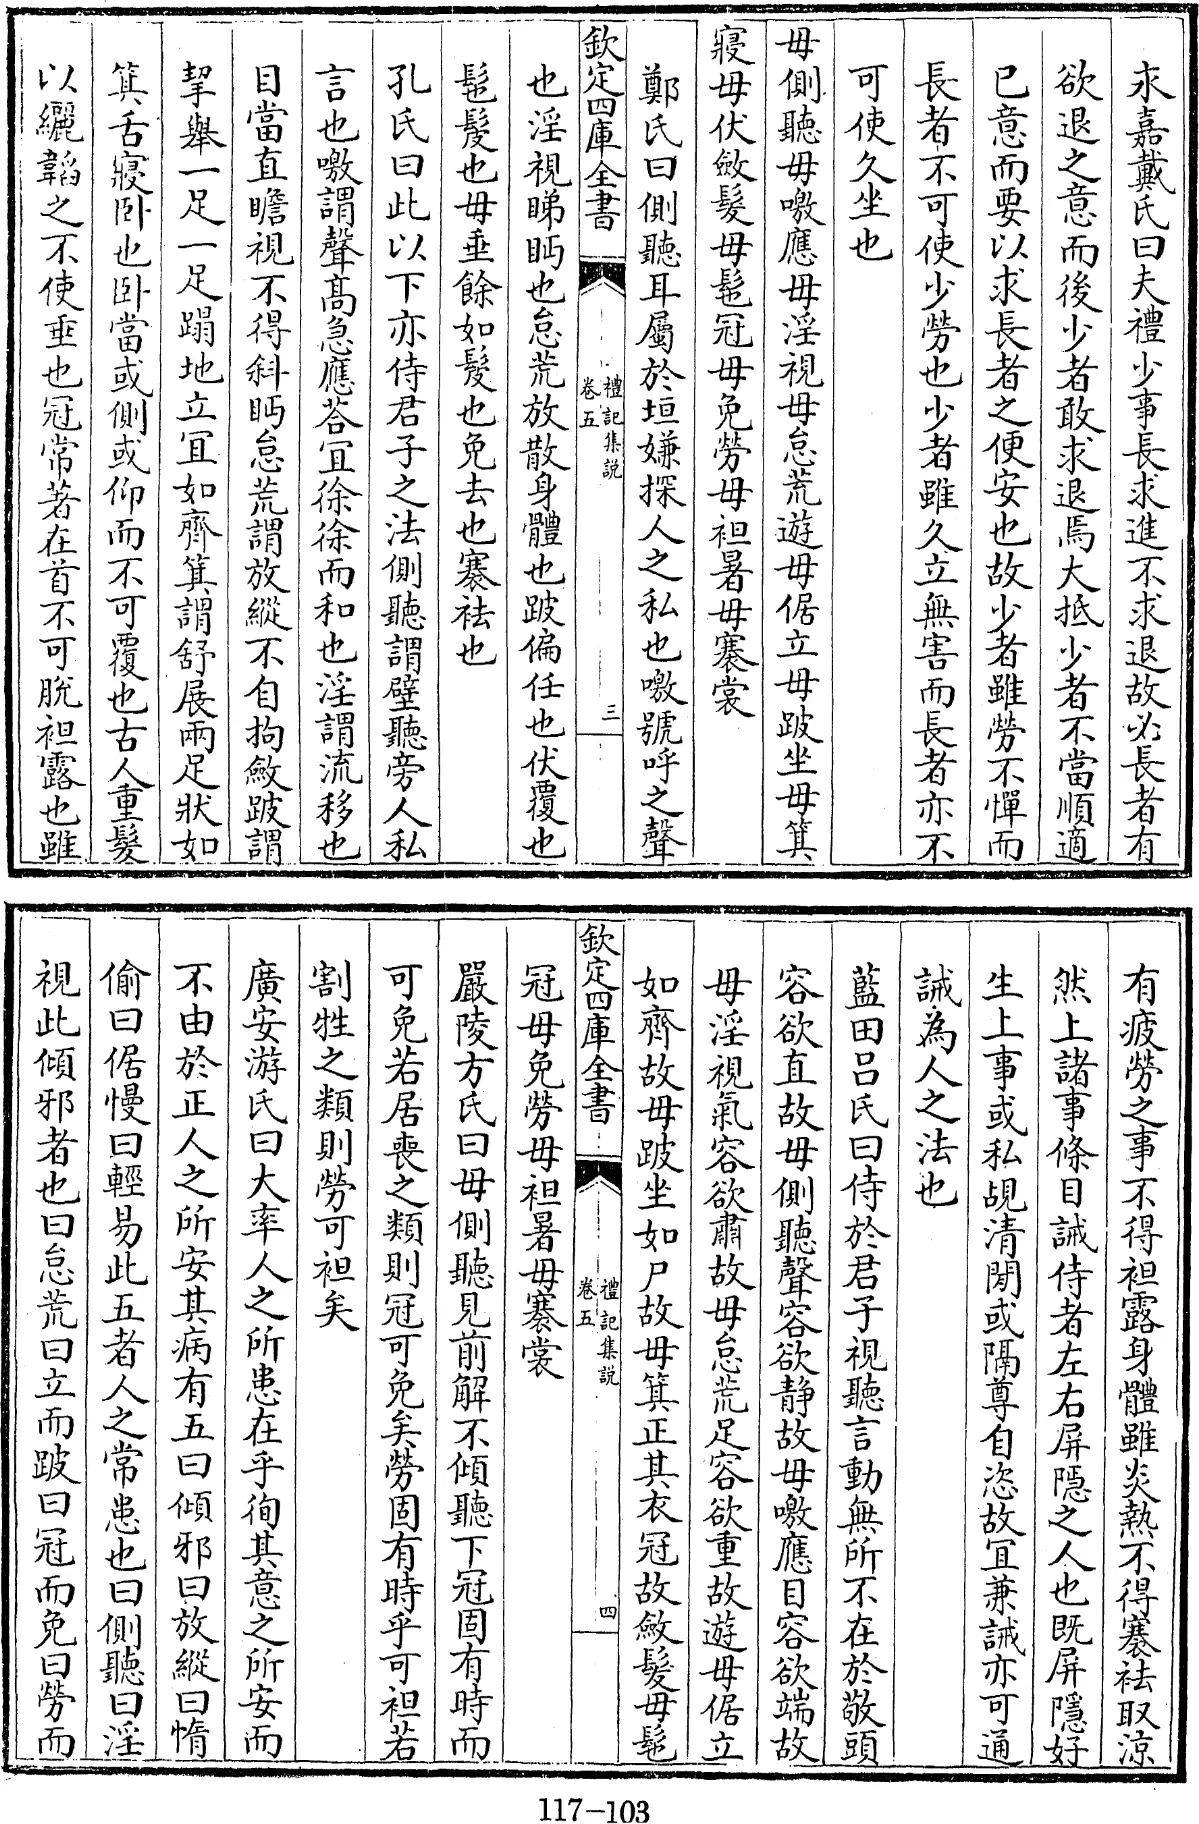 永嘉戴氏曰夫禮少事長求進不求退故必長者有
欲退之意而後少者敢求退焉大抵少者不當順適
已意而要以求長者之便安也故少者雖勞不憚而
長者不可使少勞也少者雖久立無害而長者亦不
可使久坐也
毋側聽毋噭應毋淫視毋怠荒遊毋倨立毋跛坐毋箕
寢毋伏斂髮毋髢冠毋免勞毋袒暑毋褰裳
鄭氏曰側聽耳屬於垣嫌探人之私也噭號呼之聲
欽定四庫全書
禮記集説
卷五
三
也淫視睇眄也怠荒放散身體也跛偏任也伏覆也
髢髲也毋垂餘如髲也免去也褰袪也
孔氏曰此以下亦侍君子之法側聽謂壁聽旁人私
言也噭謂聲髙急應荅宜徐徐而和也淫謂流移也
目當直瞻視不得斜眄怠荒謂放縱不自拘斂跛謂
挈舉一足一足蹋地立宜如齊箕謂舒展兩足狀如
箕舌寢卧也卧當或側或仰而不可覆也古人重髮
以纚韜之不使垂也冠常著在首不可脫袒露也雖
有疲勞之事不得袒露身體雖炎熱不得褰袪取涼
然上諸事條目誡侍者左右屏隱之人也既屏隱好
生上事或私覘清閒或隔尊自恣故宜兼誡亦可通
誡為人之法也
藍田呂氏曰侍於君子視聽言動無所不在於敬頭
容欲直故毋側聽聲容欲靜故毋噭應目容欲端故
毋淫視氣容欲肅故毋怠荒足容欲重故遊毋倨立
如齊故毋跛坐如尸故毋箕正其衣冠故斂髮毋髢
欽定四庫全書
禮記集説
卷五
四
冠毋免勞毋袒暑毋褰裳
嚴陵方氏曰毋側聽見前解不傾聽下冠固有時而
可免若居喪之類則冠可免矣勞固有時乎可袒若
割牲之類則勞可袒矣
廣安游氏曰大率人之所患在乎徇其意之所安而
不由於正人之所安其病有五曰傾邪曰放縱曰惰
偷曰倨慢曰輕易此五者人之常患也曰側聽曰淫
視此傾邪者也曰怠荒曰立而跛曰冠而免曰勞而
117-103